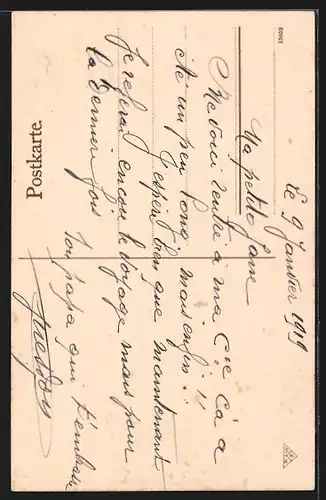 Postkarte.
Le 9 Janvier 1919
Ma petite Jane
Me voici rentré à ma Cie ça a
été un peu long mais enfin !!
J'espère bien que maintenant
Je referai encore le voyage mais pour
la dernière fois
Ton papa qui t'embrasse